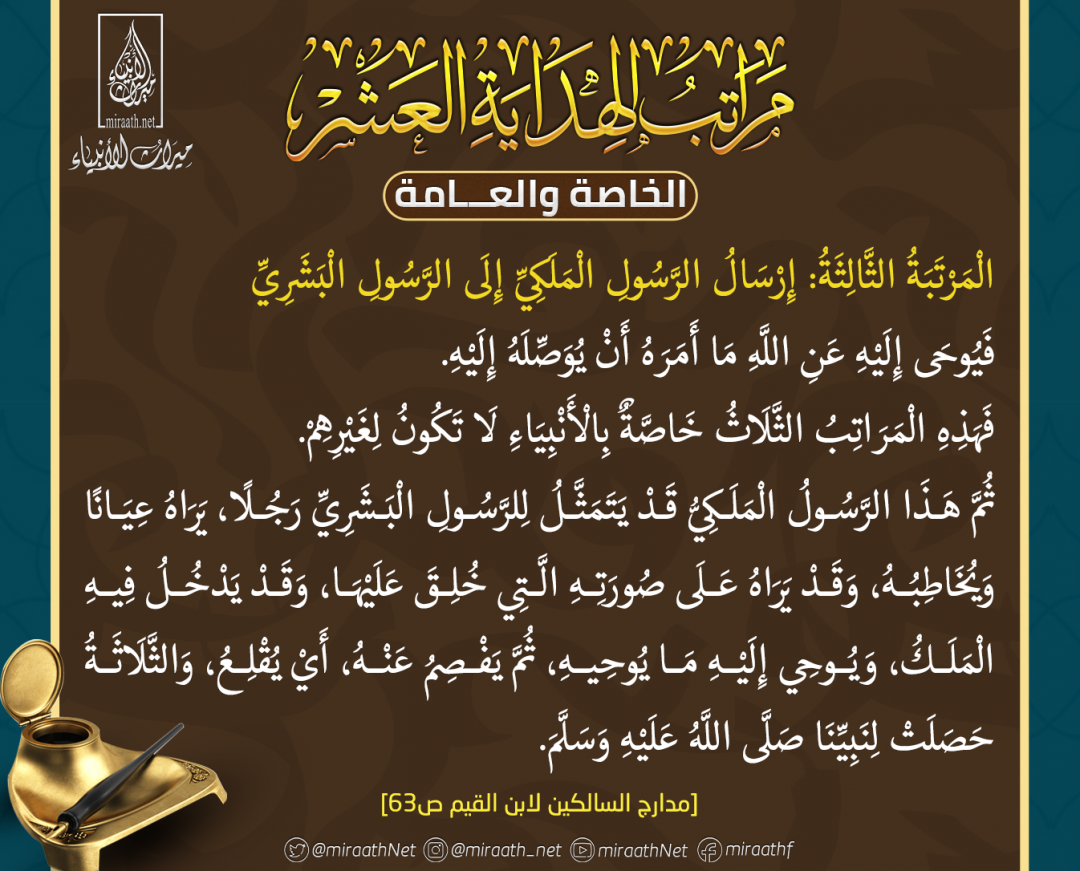 ميراث الأنبياء
miraath.net
ميراث الأنبياء
مَرَاتِبُ الهِدَايَةِ العَشْرِ
الخاصة والعـــامة
الْمَرْتَبَةُ الثَّالِثَةُ: إِرْسَالُ الرَّسُولِ الْمَلَكِيِّ إِلَى الرَّسُولِ الْبَشَرِيِّ
فَيُوحَى إِلَيْهِ عَنِ اللَّهِ مَا أَمَرَهُ أَنْ يُوَصِّلَهُ إِلَيْهِ.
فَهَذِهِ الْمَرَاتِبُ الثَّلَاثُ خَاصَّةٌ بِالْأَنْبِيَاءِ لَا تَكُونُ لِغَيْرِهِمْ.
ثُمَّ هَـذَا الرَّسُـولُ الْمَلَكِيُّ قَـدْ يَتَمَثَّـلُ لِلرَّسُـولِ الْبَـشَرِيِّ رَجُـلًا، يَرَاهُ عِيَـانًا
وَيُخَاطِبُـهُ، وَقَـدْ يَرَاهُ عَـلَى صُورَتِـهِ الَّـتِي خُلِـقَ عَلَيْهَـا، وَقَـدْ يَدْخُـلُ فِيـهِ
الْمَلَـكُ، وَيُـوحِي إِلَيْـهِ مَـا يُوحِيـهِ، ثُمَّ يَفْـصِمُ عَنْـهُ، أَيْ يُقْلِـعُ، وَالثَّلَاثَـةُ
حَصَلَتْ لِنَبِيِّنَا صَلَّى اللَّهُ عَلَيْهِ وَسَلَّمَ.
[مدارج السالكين لابن القيم ص63]
@miraathNet @miraath_net miraathNet miraathf